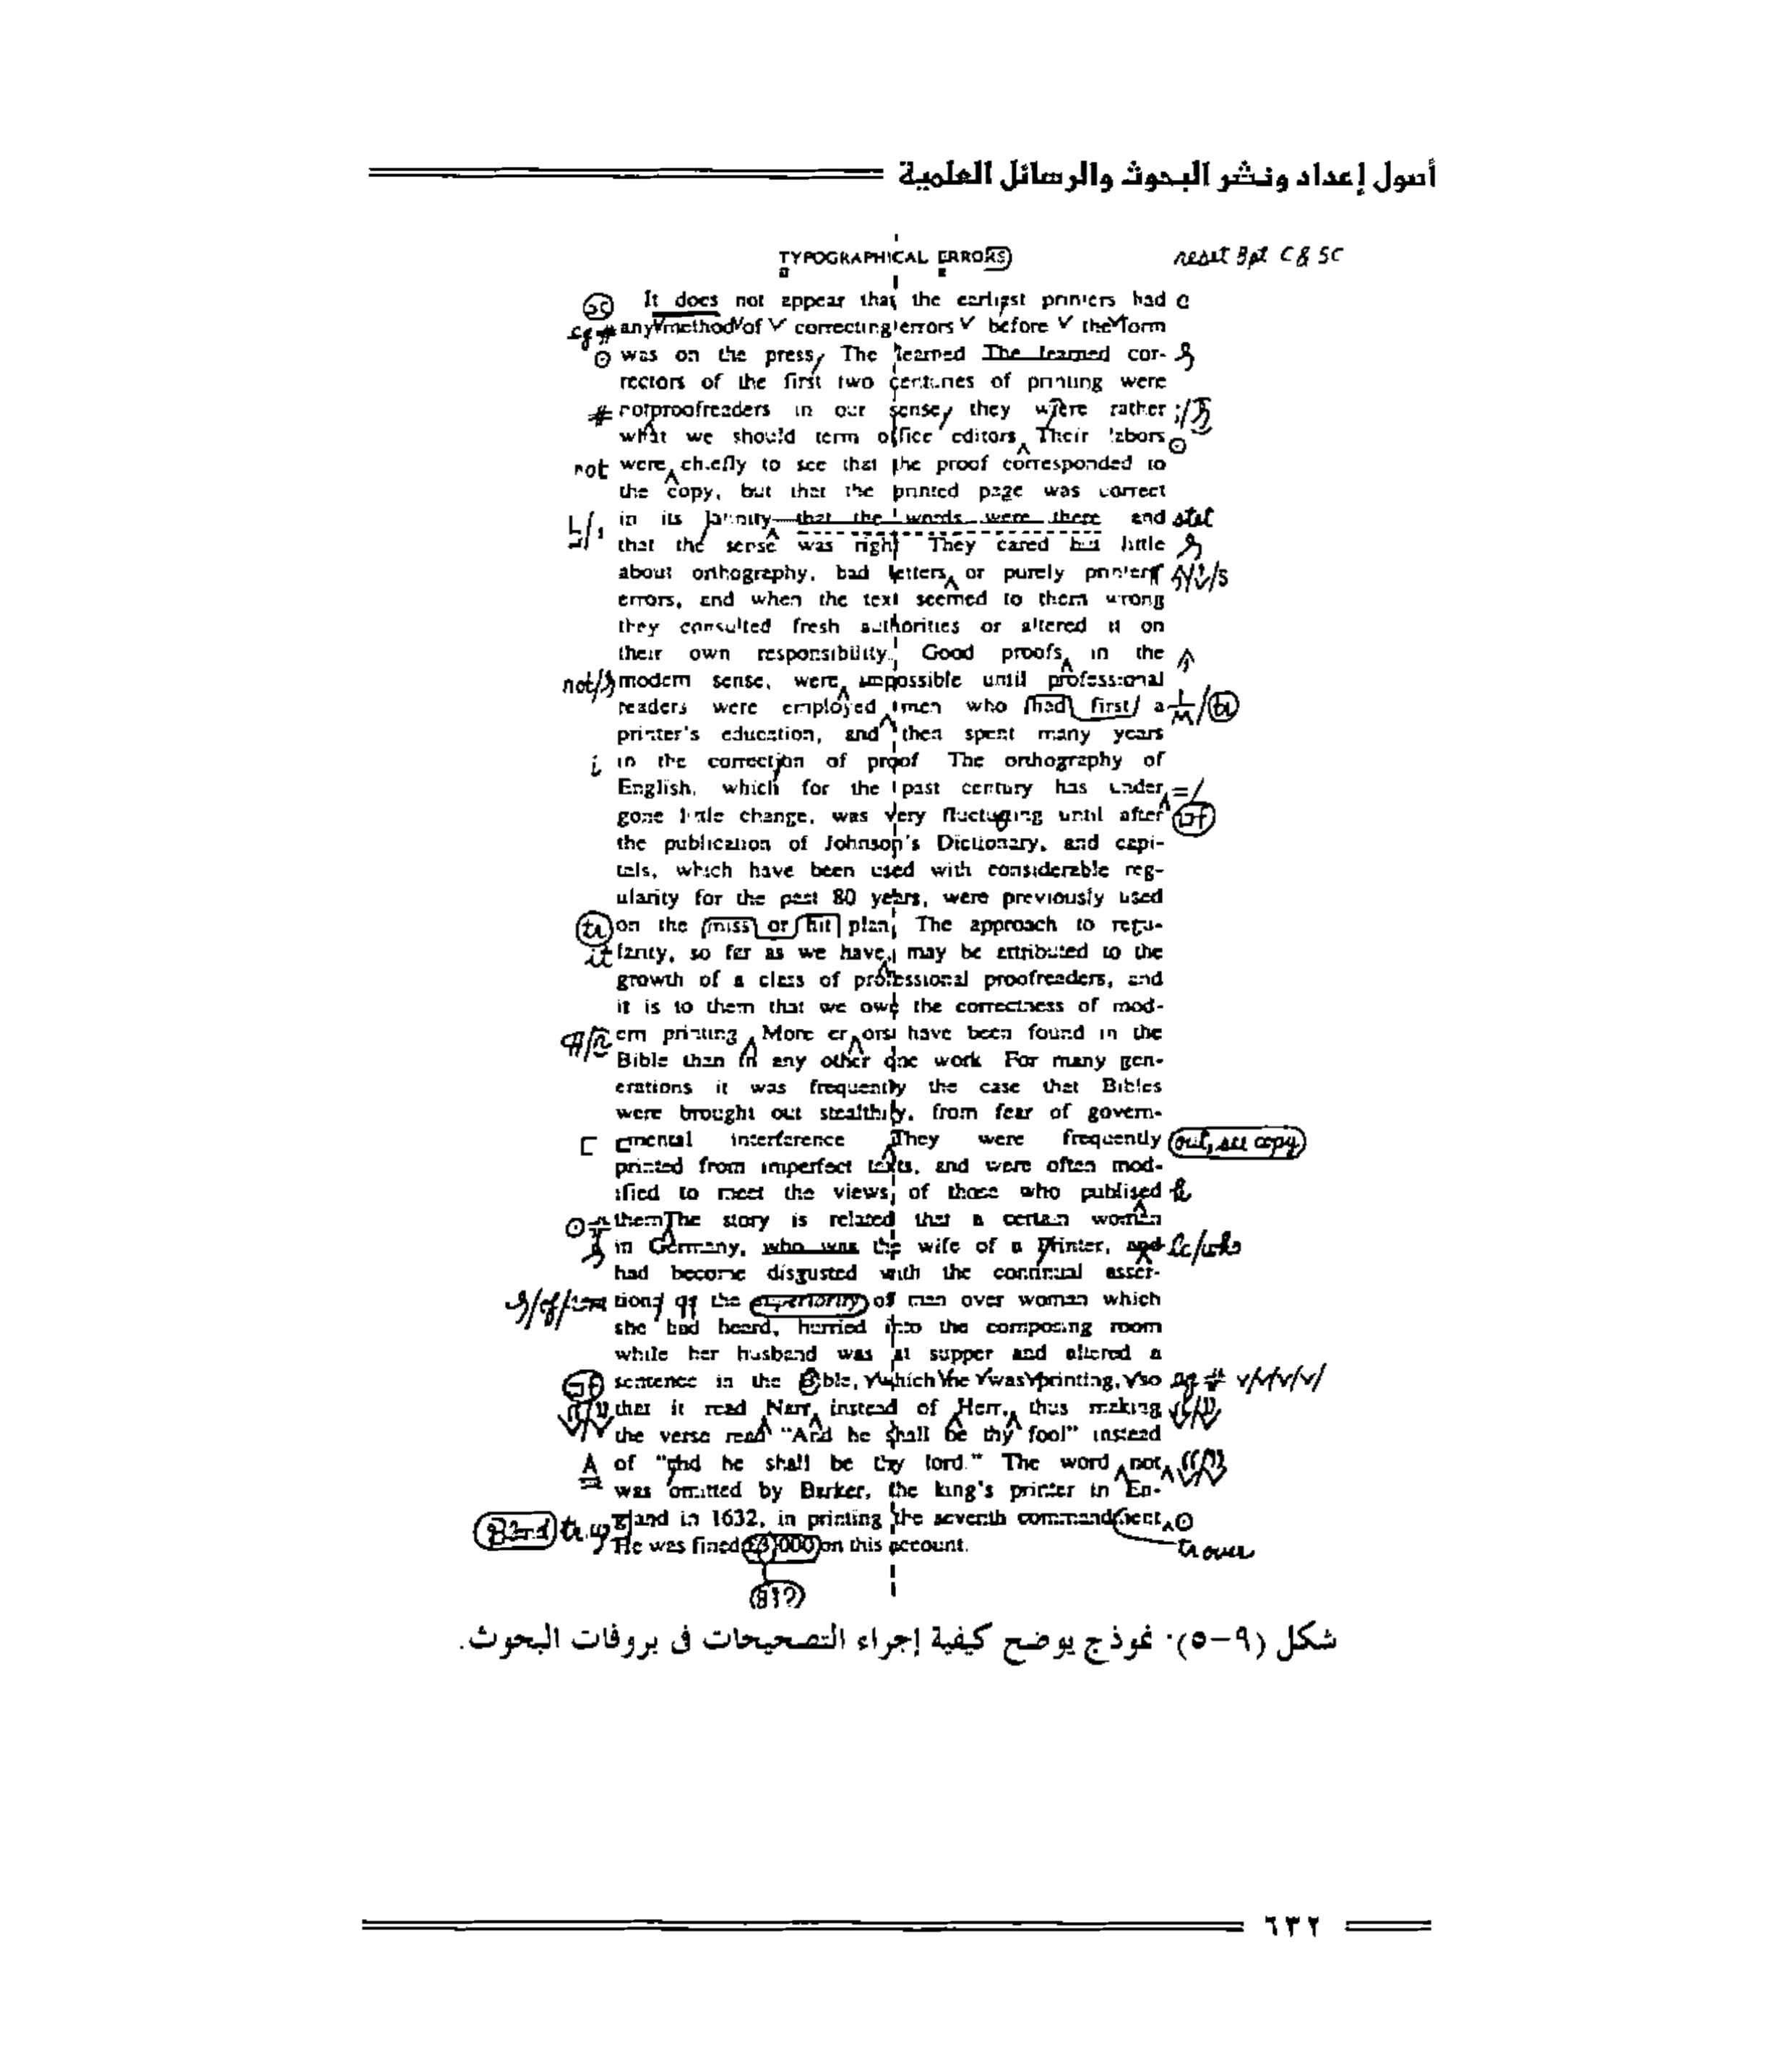 أصول إعداد ونشر البحوث والرسائل العلمية
TYPOGRAPHICAL ERRORS reset 8pt C & SC
sc It does not appear that the earliest printers had
eq # any method of correcting errors before the form
was on the press, The learned The learned cor-
rectors of the first two centuries of printing were
# notproofreaders in our sense, they were rather ;/
what we should term office editors Their labors
not were chiefly to see that the proof corresponded to
the copy, but that the printed page was correct
in its latinity—that the words were there and stet
that the sense was right They cared but little
about orthography, bad letters or purely printers
errors, and when the text seemed to them wrong
they consulted fresh authorities or altered it on
their own responsibility. Good proofs in the
not/ modern sense, were impossible until professional
readers were employed men who had first a 1/M/tr
printer's education, and then spent many years
i in the correction of proof The orthography of
English, which for the past century has under =/
gone little change, was very fluctuating until after wf
the publication of Johnson's Dictionary, and capi-
tals, which have been used with considerable reg-
ularity for the past 80 years, were previously used
tr on the miss or hit plan. The approach to regu-
it larity, so far as we have, may be attributed to the
growth of a class of professional proofreaders, and
it is to them that we owe the correctness of mod-
¶/r ern printing More er ors have been found in the
Bible than in any other one work For many gen-
erations it was frequently the case that Bibles
were brought out stealthily, from fear of govern-
[ mental interference They were frequently out, see copy
printed from imperfect texts, and were often mod-
ified to meet the views of those who publised h
themThe story is related that a certain woman
in Germany, who was the wife of a Printer, and lc/who
had become disgusted with the continual asser-
tions of the superiority of man over woman which
she had heard, hurried into the composing room
while her husband was at supper and altered a
wf sentence in the Bible, which he was printing, so eq # v/v/v/v/
that it read Narr instead of Herr, thus making
the verse read "And he shall be thy fool" instead
A of "and he shall be thy lord." The word not
was omitted by Barker, the king's printer in En-
gland in 1632, in printing the seventh commandment
He was fined £3,000 on this account. tr over
شكل (٩-٥): نموذج يوضح كيفية إجراء التصحيحات فى بروفات البحوث.
٦٣٢